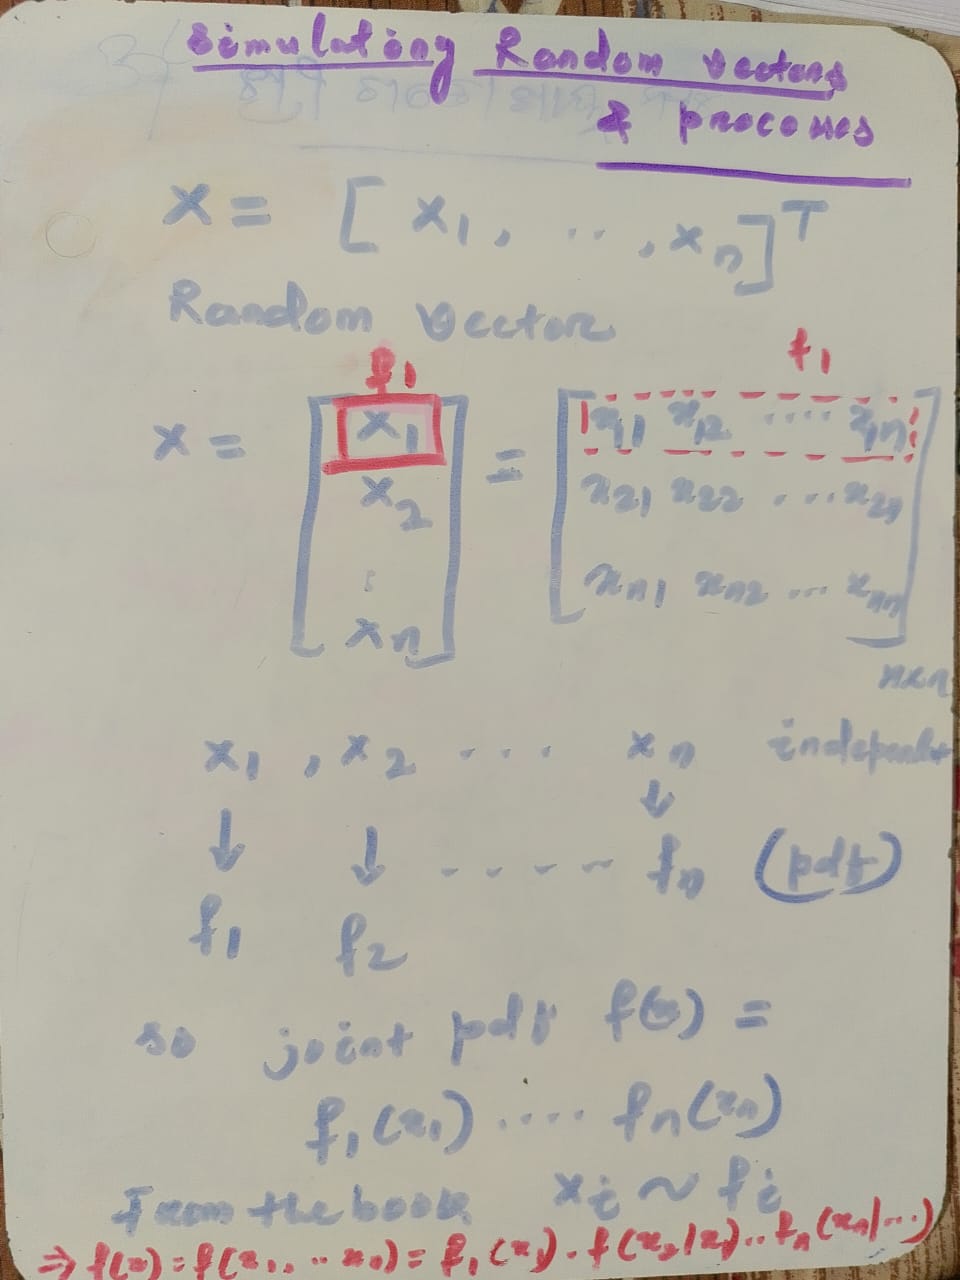 Simulating Random vectors
& processes
X = [X₁, ..., Xₙ]ᵀ
Random vector
f₁ f₁
X = [X₁ X₂ ⋮ Xₙ] = [x₁₁ x₁₂ .... x₁ₙ
x₂₁ x₂₂ ... x₂ₙ
xₙ₁ xₙ₂ ... xₙₙ]
n×n
X₁, X₂ ... Xₙ independent
↓ ↓ ---- ↓
f₁ f₂ fₙ (pdf)
so joint pdf f(x) =
f₁(x₁) .... fₙ(xₙ)
From the book Xᵢ ~ fᵢ
⇒ f(x) = f(x₁, .. xₙ) = f₁(x₁) . f(x₂|x₁) .. fₙ(xₙ|...)